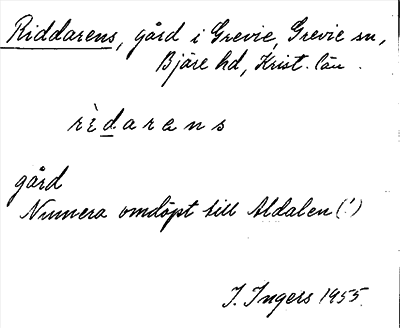 Riddarens, gård i Grevie, Grevie sn,
Bjäre hd, Krist. län.
rὲdarans
gård
Numera omdöpt till Aldalen (!)
I. Ingers 1955.